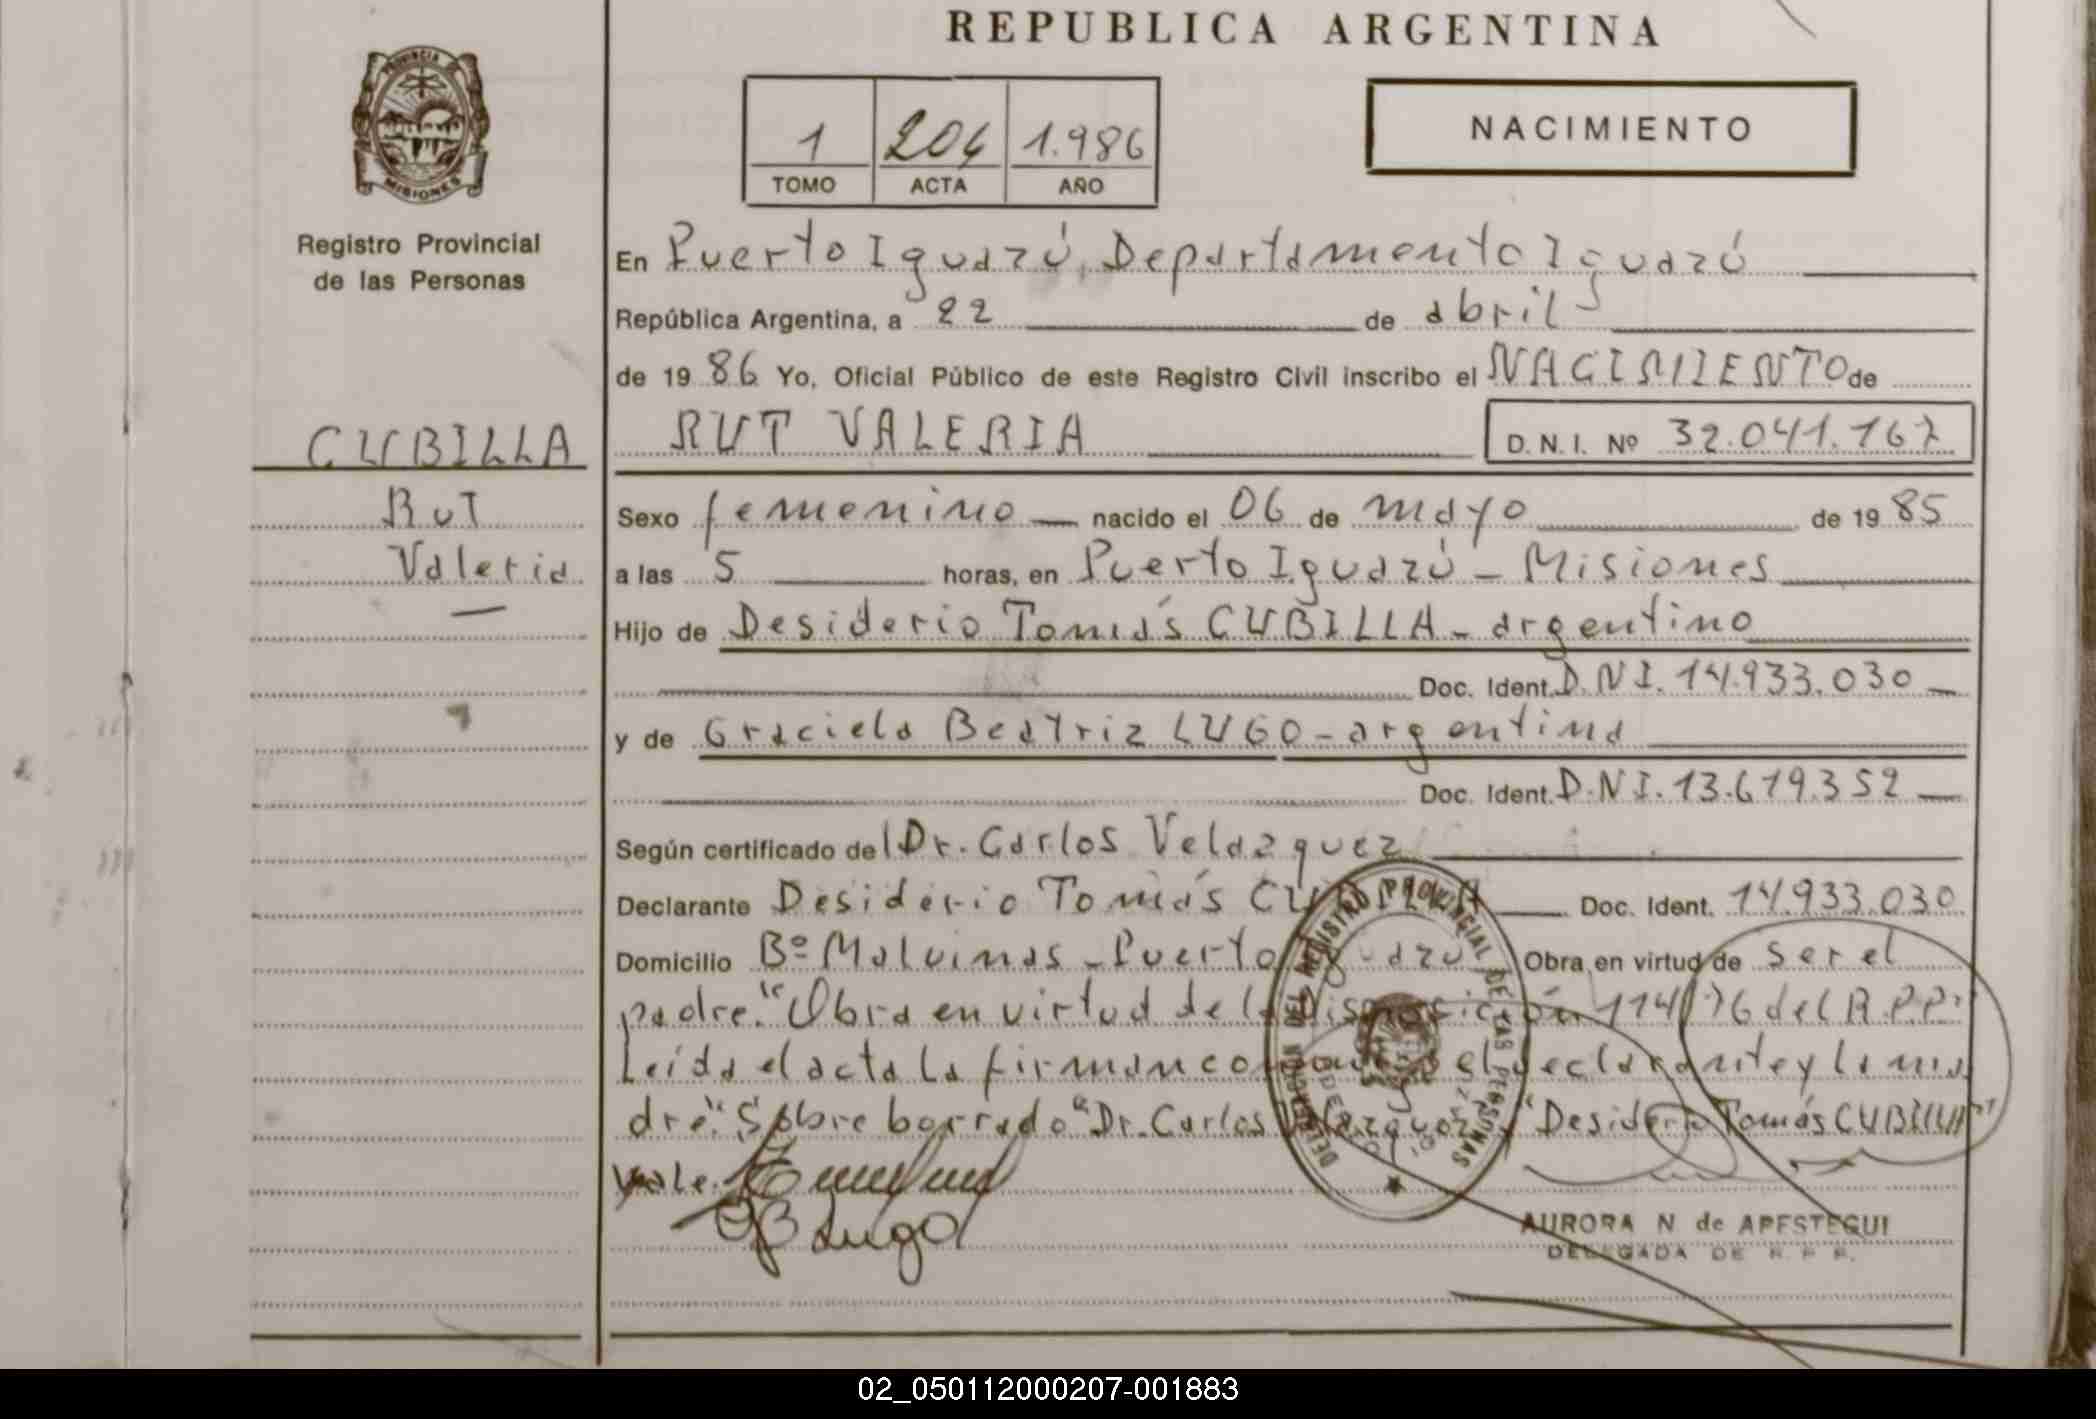 REPUBLICA ARGENTINA
PROVINCIA
MISIONES
Registro Provincial
de las Personas
1 204 1.986
TOMO ACTA AÑO
NACIMIENTO
En Puerto Iguazú, Departamento Iguazú
República Argentina, a 22 de abril
de 19 86 Yo, Oficial Público de este Registro Civil inscribo el NACIMIENTO de
CUBILLA
RUT VALERIA D.N.I. Nº 32.041.167
Rut
Sexo femenino nacido el 06 de mayo de 19 85
Valeria
a las 5 horas, en Puerto Iguazú - Misiones
Hijo de Desiderio Tomás CUBILLA - argentino
Doc. Ident. D.N.I. 14.933.030 -
y de Graciela Beatriz LUGO - argentina
Doc. Ident. D.N.I. 13.619.352 -
Según certificado del Dr. Carlos Velazquez
Declarante Desiderio Tomás CUBILLA Doc. Ident. 14.933.030
Domicilio Bº Malvinas - Puerto Iguazú Obra en virtud de ser el
padre. "Obra en virtud de la Disposición 114/76 del R.P.P."
Leída el acta la firman conmigo el declarante y la ma
dre". Sobre borrado "Dr. Carlos Velazquez" "Desiderio Tomás CUBILLA"
Vale.
GB Lugo
DELEGACION DEL REGISTRO PROVINCIAL DE LAS PERSONAS
AURORA N de APESTEGUI
DELEGADA DE R. P. P.
02_050112000207-001883